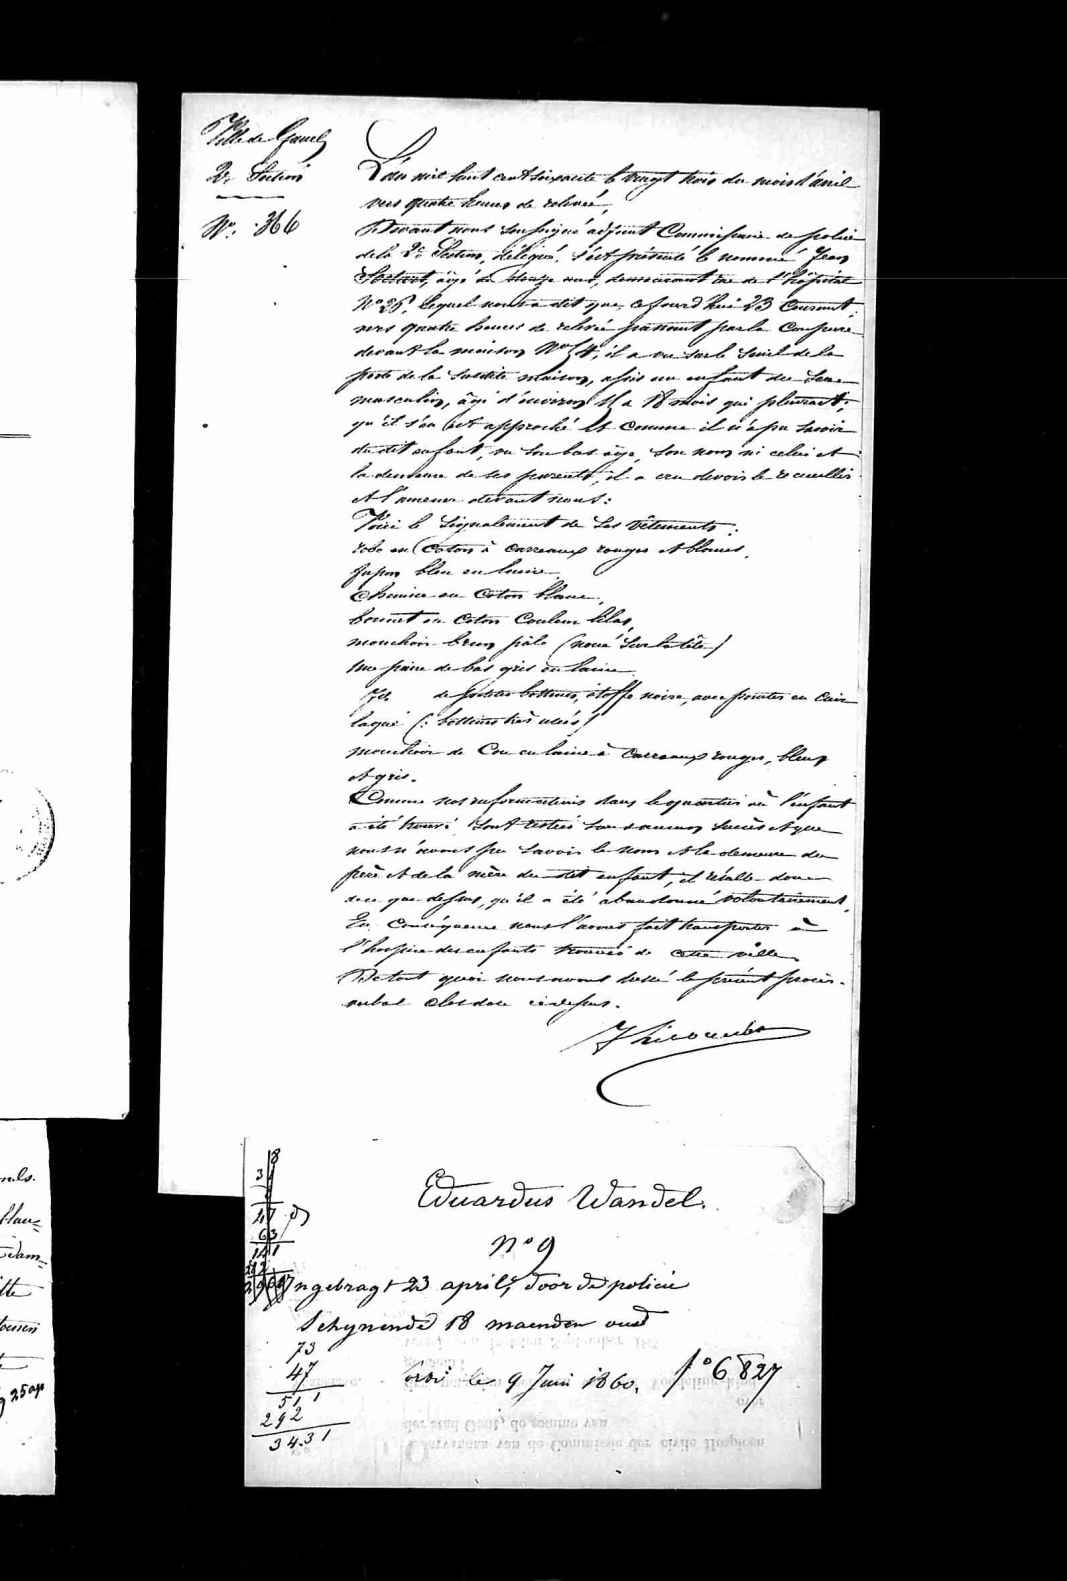 Ville de Gand
2e Section
No. 366
L'an mil huit cent soixante le vingt trois du mois d'avril
vers quatre heures de relevée,
Devant nous soussigné adjoint Commissaire de police
de la 2e Section, délégué, s'est présenté le nommé Jean
âgé de douze ans, demeurant rue de l'hôpital
No lequel nous a dit que, ce jourd'hui 23 Courant,
vers quatre heures de relevée passant par la
devant la maison No il a vu sur le seuil de la
porte de la susdite maison, assis un enfant du Sexe
masculin, âgé d'environ 18 mois qui pleurait;
qu'il s'en est approché et comme il n'a pu savoir
du dit enfant, vu son bas âge, son nom ni celui et
la demeure de ses parents, il a cru devoir le recueillir
et l'amener devant nous:
Voici le Signalement de Ses Vêtements:
robe en Coton à carreaux rouges et blancs,
jupon bleu en laine
Chemise en Coton blanc,
bonnet en Coton Couleur lilas,
mouchoir brun pâle (noué sur la tête)
une paire de bas gris en laine
de petites bottines, étoffe noire, avec pointes en Cuir
laqué (: bottines très usées)
mouchoir de Cou en laine à Carreaux rouges, bleus
et gris.
Comme nos informations dans le quartier où l'enfant
a été trouvé sont restées sans aucun succès et que
nous n'avons pu savoir le nom et la demeure du
père et de la mère du dit enfant, il résulte donc
de ce que dessus, qu'il a été abandonné volontairement,
En Conséquence nous l'avons fait transporter à
l'hospice des enfants trouvés de cette ville
De tout quoi nous avons dressé le présent procès-
verbal clos date ci-dessus.
Eduardus Wandel.
No 9
Ingebragt 23 april, door de policie
Schynende 18 maenden oud
73
47
511
292
3431
le 9 Juin 1860. fo 6827